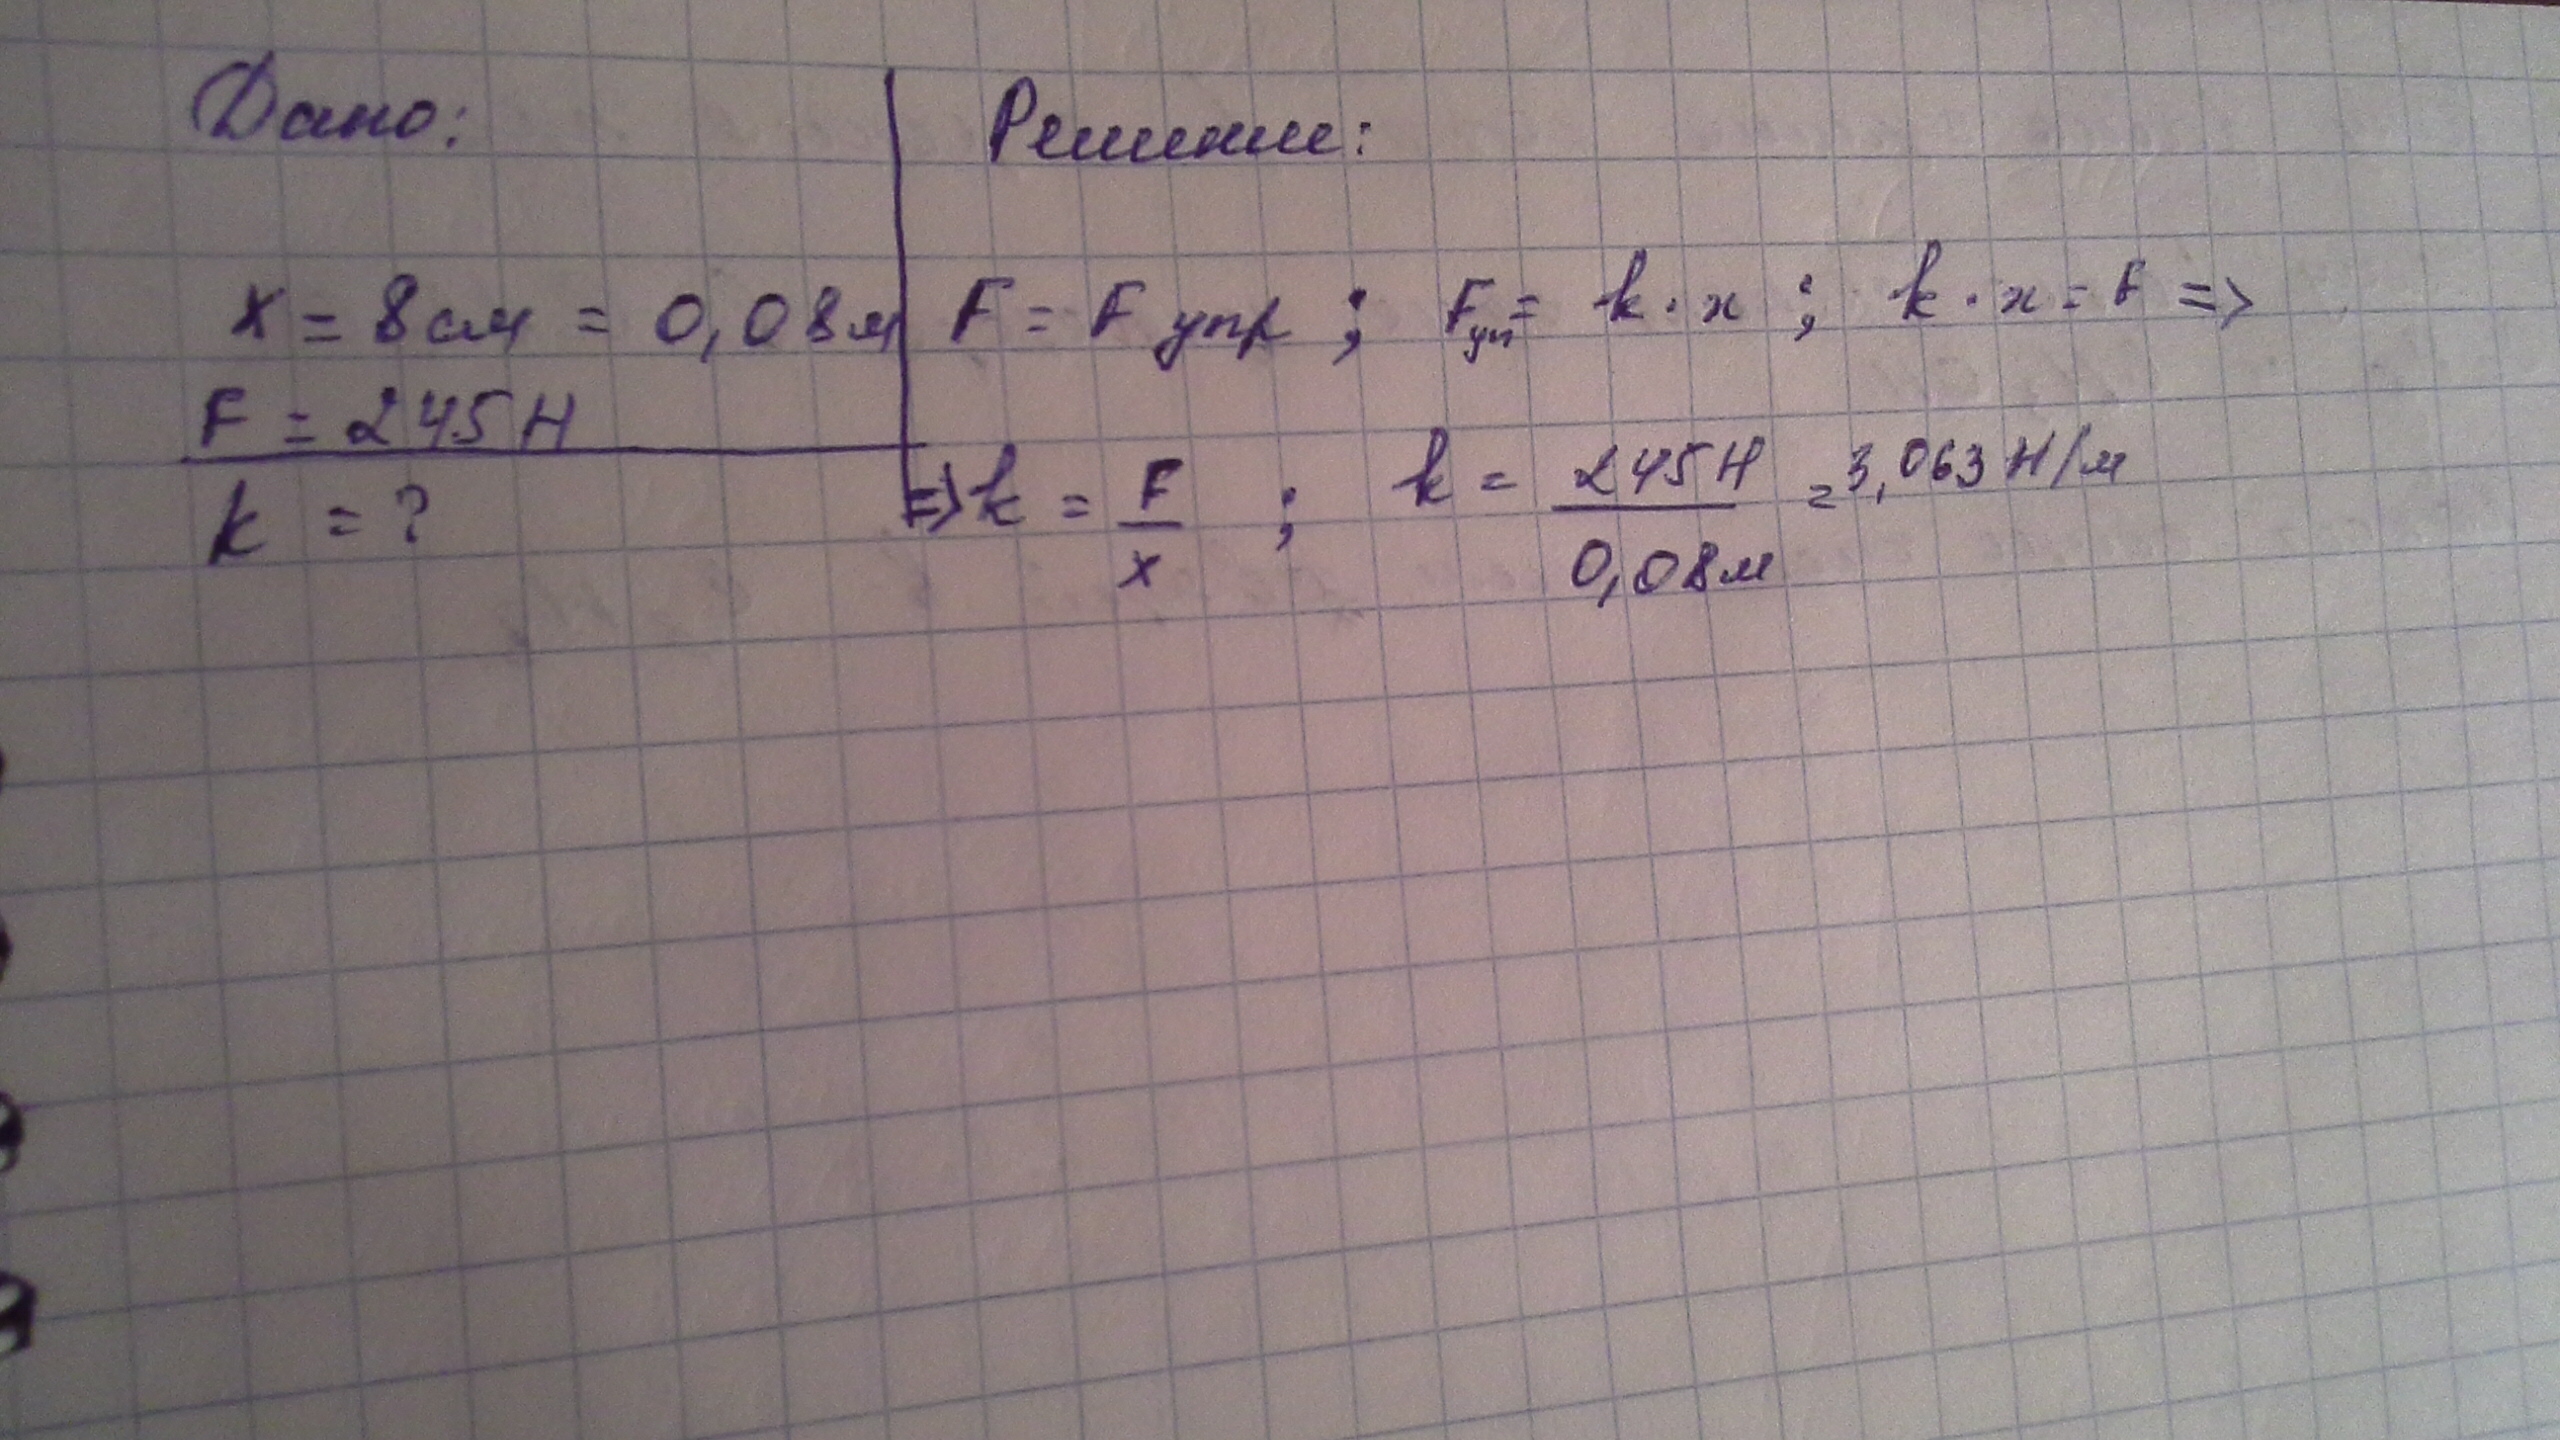 Дано:
x = 8 см = 0,08 м
F = 245 Н
k = ?
Решение:
F = F упр ; Fуп = k · x ; k · x = F =>
=> k = F/x ; k = 245 Н / 0,08 м = 3,063 Н/м